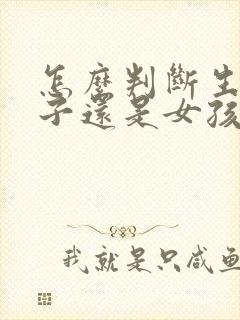 怎麼判斷生
子還是女孩
我就是只咸魚